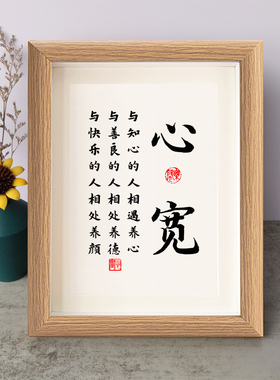 心宽
与知心的人相遇养心
与善良的人相处养德
与快乐的人相处养颜